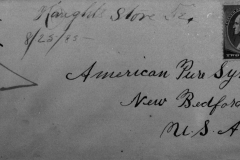 Knights Store Fe.
8/25/85-
American Pure Sy
New Bedfor
U.S.A